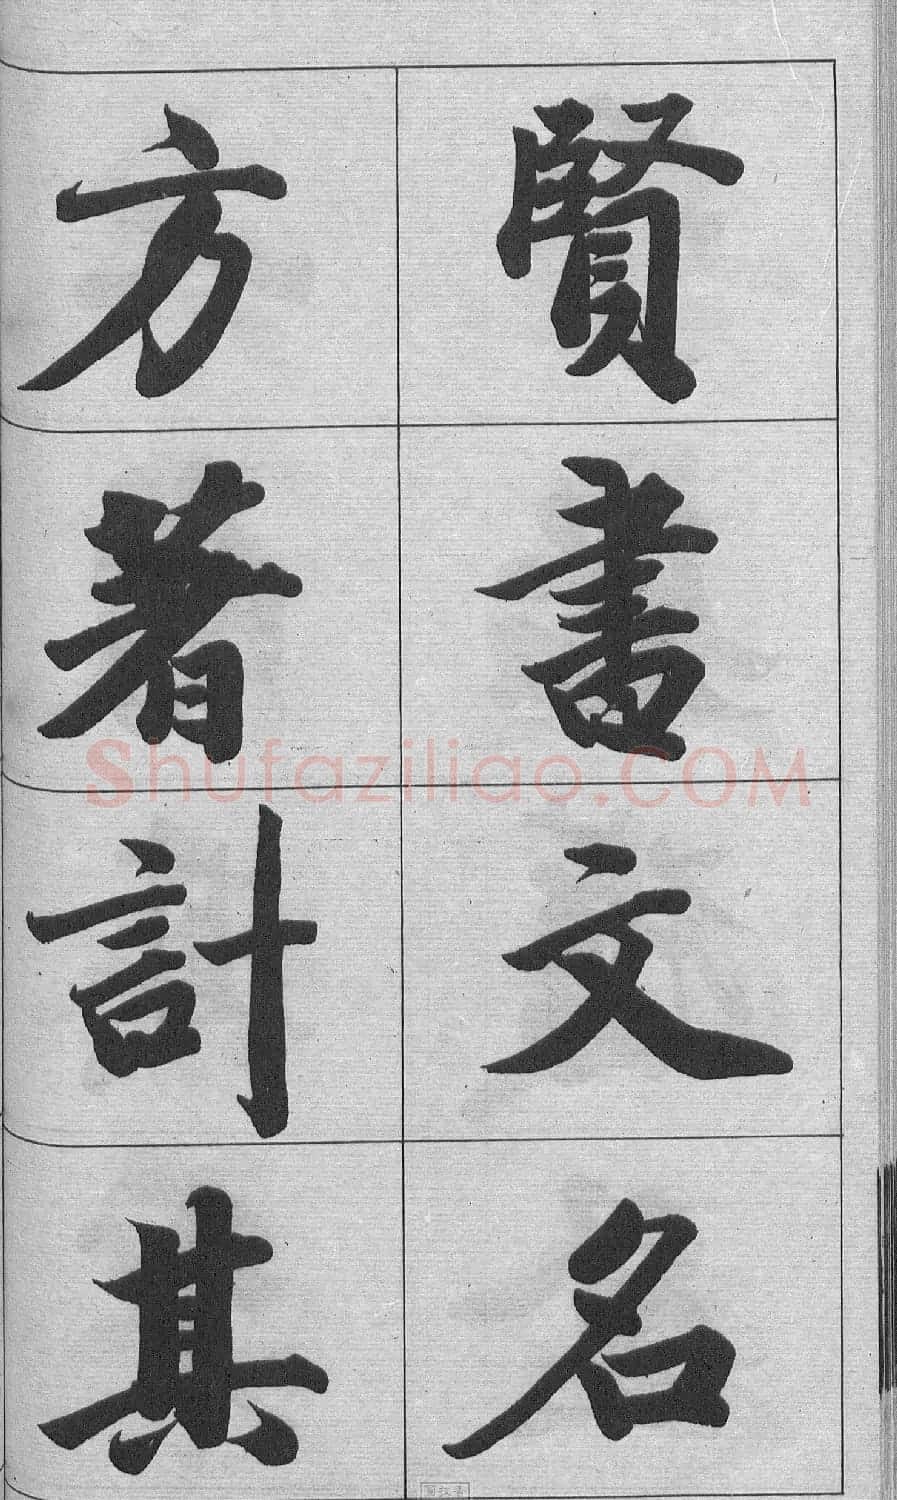 賢書文名
方著計其
Shufaziliao.COM